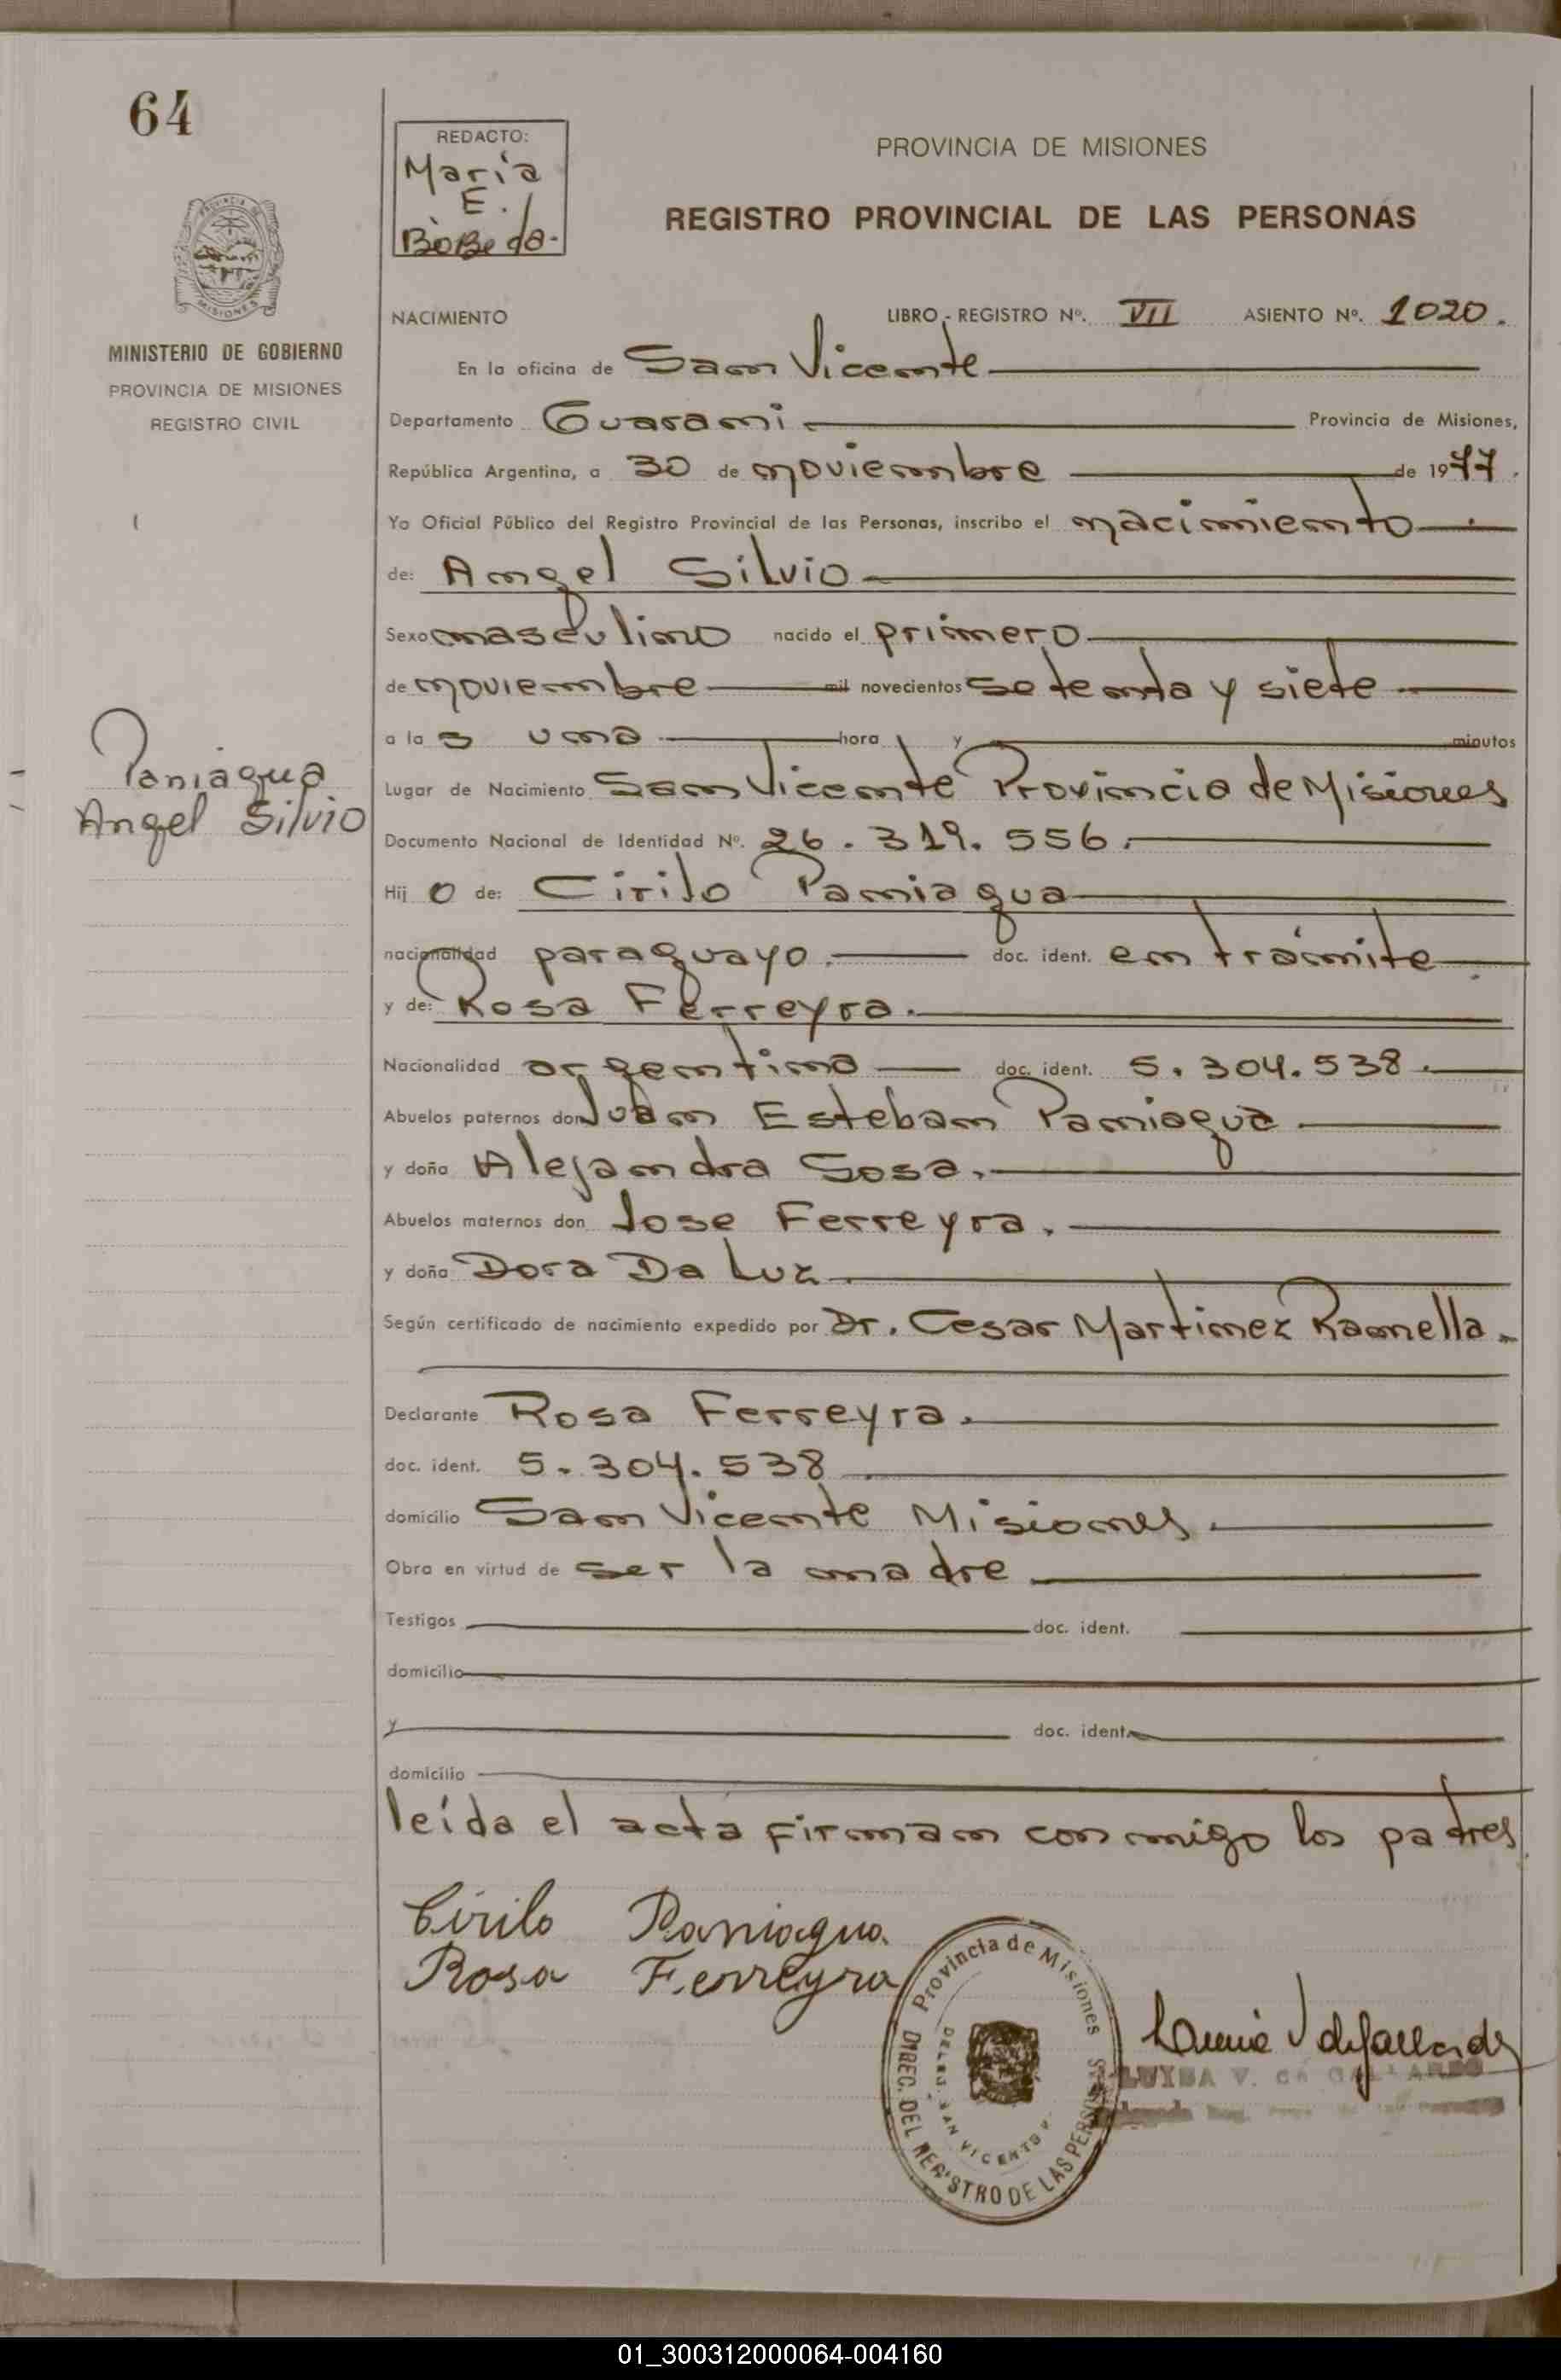 64
REDACTO:
Maria
E.
BoBeda-
PROVINCIA DE MISIONES
REGISTRO PROVINCIAL DE LAS PERSONAS
PROVINCIA DE
MISIONES
MINISTERIO DE GOBIERNO
PROVINCIA DE MISIONES
REGISTRO CIVIL
NACIMIENTO LIBRO - REGISTRO Nº. VII ASIENTO Nº. 1020.
En la oficina de San Vicente
Departamento Guarani Provincia de Misiones,
República Argentina, a 30 de noviembre de 1977.
Yo Oficial Público del Registro Provincial de las Personas, inscribo el nacimiento
de: Angel Silvio
Sexo masculino nacido el primero
de noviembre mil novecientos setenta y siete
a la s una hora y minutos
Paniagua
Angel Silvio
Lugar de Nacimiento San Vicente Provincia de Misiones
Documento Nacional de Identidad Nº. 26.319.556.
Hij o de: Cirilo Paniagua
nacionalidad paraguayo. doc. ident. en trámite
y de: Rosa Ferreyra.
Nacionalidad argentina doc. ident. 5.304.538.
Abuelos paternos don Juan Esteban Paniagua
y doña Alejandra Sosa.
Abuelos maternos don Jose Ferreyra.
y doña Dora Da Luz.
Según certificado de nacimiento expedido por Dr. Cesar Martinez Ramella.
Declarante Rosa Ferreyra.
doc. ident. 5.304.538
domicilio San Vicente Misiones.
Obra en virtud de ser la madre
Testigos doc. ident.
domicilio
y doc. ident.
domicilio
leída el acta firman conmigo los padres.
Cirilo Paniagua.
Rosa Ferreyra
Provincia de Misiones
DIREC. DEL REGISTRO DE LAS PERSONAS
SAN VICENTE
LUYSA V. de GALLARDO
01_300312000064-004160